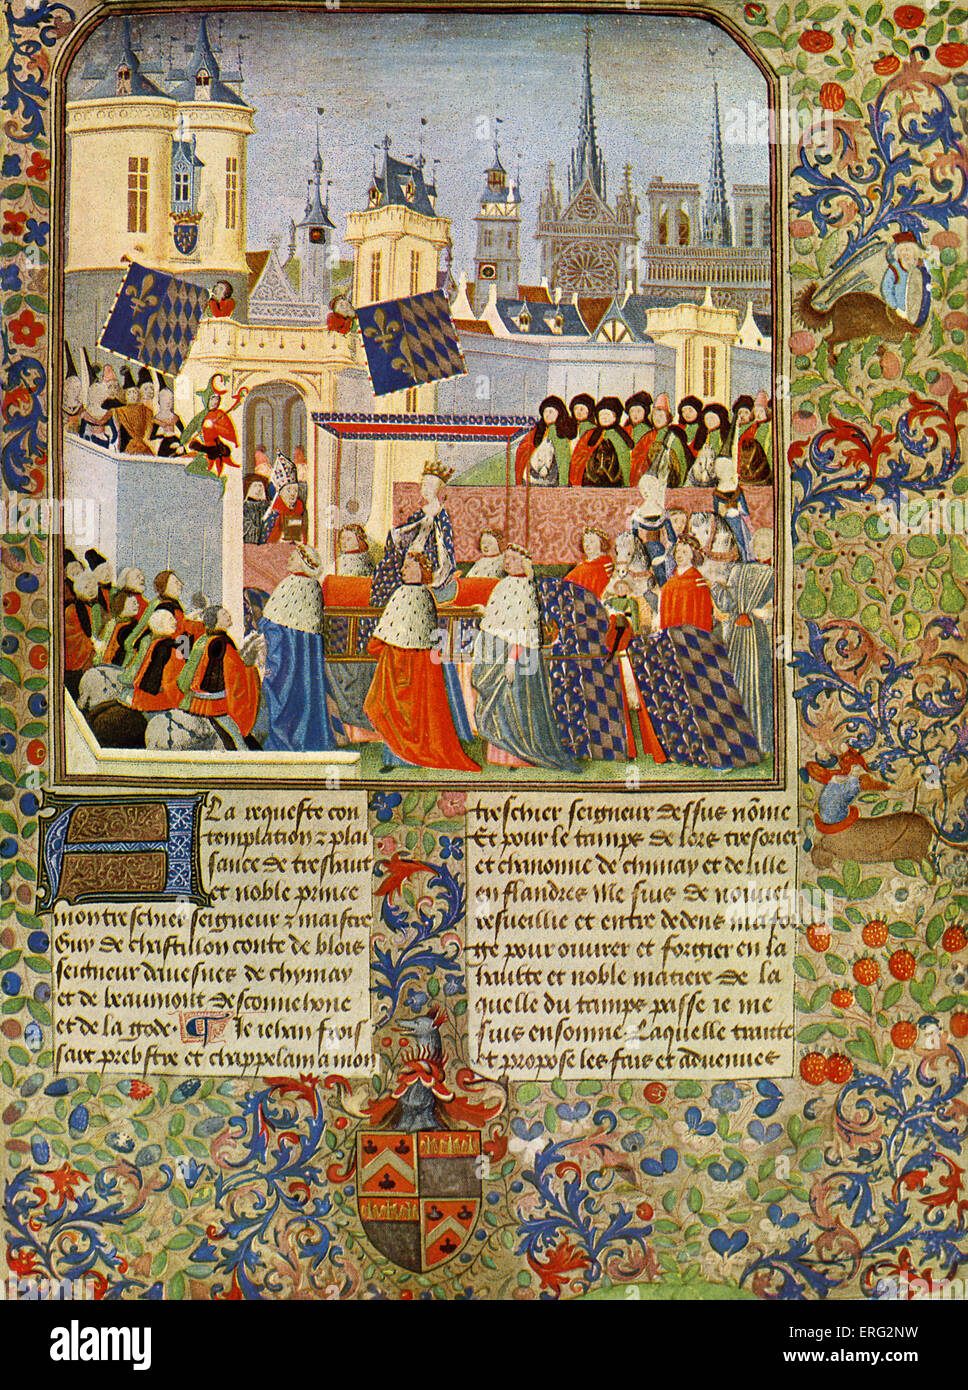 A La requeste con
templation & plai
sance de treshault
et noble prince
mon treschier seigneur & maistre
Guy de chastillon conte de blois
seigneur davesnes de chymay
et de beaumont de sconnehove
et de la gode. Je Jehan frois
sart prebstre et chappelain a mon
treschier seigneur dessus nõme
Et pour le temps de lors tresorier
et chanonne de chymay et de lille
en flandres Me suis de nouvel
resueillie et entre dedens ma for
ge pour ouvrer et forgier en la
haulte et noble matiere de la
quelle du temps passe je me
suis ensonnie. Laquelle traitte
et propose les fais et advenues
alamy
Image ID: ERG2NW
www.alamy.com